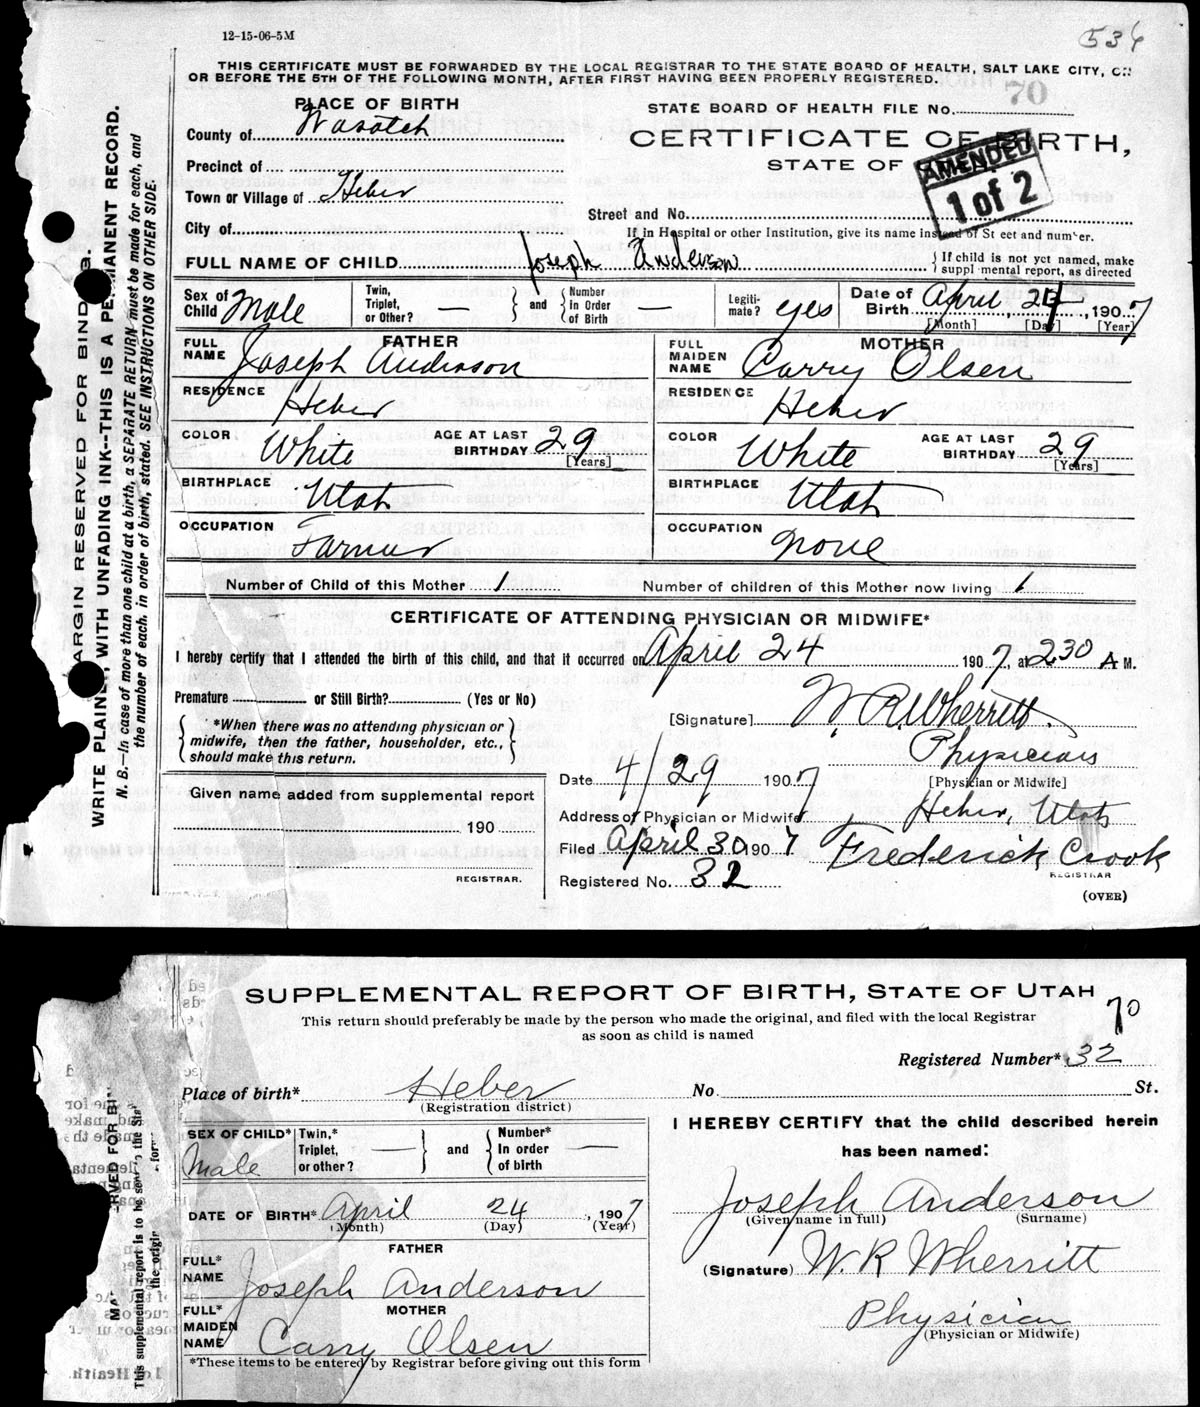 12-15-06-5M
536
THIS CERTIFICATE MUST BE FORWARDED BY THE LOCAL REGISTRAR TO THE STATE BOARD OF HEALTH, SALT LAKE CITY, ON
OR BEFORE THE 5TH OF THE FOLLOWING MONTH, AFTER FIRST HAVING BEEN PROPERLY REGISTERED.
PLACE OF BIRTH
STATE BOARD OF HEALTH FILE No. 70
County of Wasatch
CERTIFICATE OF BIRTH,
Precinct of
STATE OF
AMENDED
1 of 2
Town or Village of Heber
Street and No.
City of
If in Hospital or other Institution, give its name instead of Street and number.
FULL NAME OF CHILD Joseph Anderson { If child is not yet named, make
supplemental report, as directed
Sex of Child Male Twin, Triplet, or Other? — } and { Number in Order of Birth — Legitimate? yes Date of Birth April 24, 1907
[Month] [Day] [Year]
FATHER
FULL NAME Joseph Anderson
RESIDENCE Heber
COLOR White AGE AT LAST BIRTHDAY 29 [Years]
BIRTHPLACE Utah
OCCUPATION Farmer
MOTHER
FULL MAIDEN NAME Carry Olsen
RESIDENCE Heber
COLOR White AGE AT LAST BIRTHDAY 29 [Years]
BIRTHPLACE Utah
OCCUPATION None
Number of Child of this Mother 1 Number of children of this Mother now living 1
CERTIFICATE OF ATTENDING PHYSICIAN OR MIDWIFE*
I hereby certify that I attended the birth of this child, and that it occurred on April 24 1907, at 230 A M.
Premature or Still Birth? (Yes or No)
{ *When there was no attending physician or
midwife, then the father, householder, etc.,
should make this return. }
[Signature] W. R. Wherritt.
Physician
Date 4/29 1907 [Physician or Midwife]
Address of Physician or Midwife Heber, Utah
Given name added from supplemental report
190
REGISTRAR.
Filed April 30 1907 Frederick Crook
REGISTRAR
Registered No. 32
(OVER)
MARGIN RESERVED FOR BINDING.
WRITE PLAINLY, WITH UNFADING INK--THIS IS A PERMANENT RECORD.
N. B.—In case of more than one child at a birth, a SEPARATE RETURN must be made for each, and
the number of each, in order of birth, stated. SEE INSTRUCTIONS ON OTHER SIDE.
SUPPLEMENTAL REPORT OF BIRTH, STATE OF UTAH
70
This return should preferably be made by the person who made the original, and filed with the local Registrar
as soon as child is named
Registered Number* 32
Place of birth* Heber No. St.
(Registration district)
SEX OF CHILD* Male Twin,* Triplet, or other? — } and { Number* In order of birth —
DATE OF BIRTH* April 24, 1907
(Month) (Day) (Year)
FATHER
FULL* NAME Joseph Anderson
MOTHER
FULL* MAIDEN NAME Carry Olsen
*These items to be entered by Registrar before giving out this form
I HEREBY CERTIFY that the child described herein
has been named:
Joseph Anderson
(Given name in full) (Surname)
(Signature) W. R Wherritt
Physician
(Physician or Midwife)